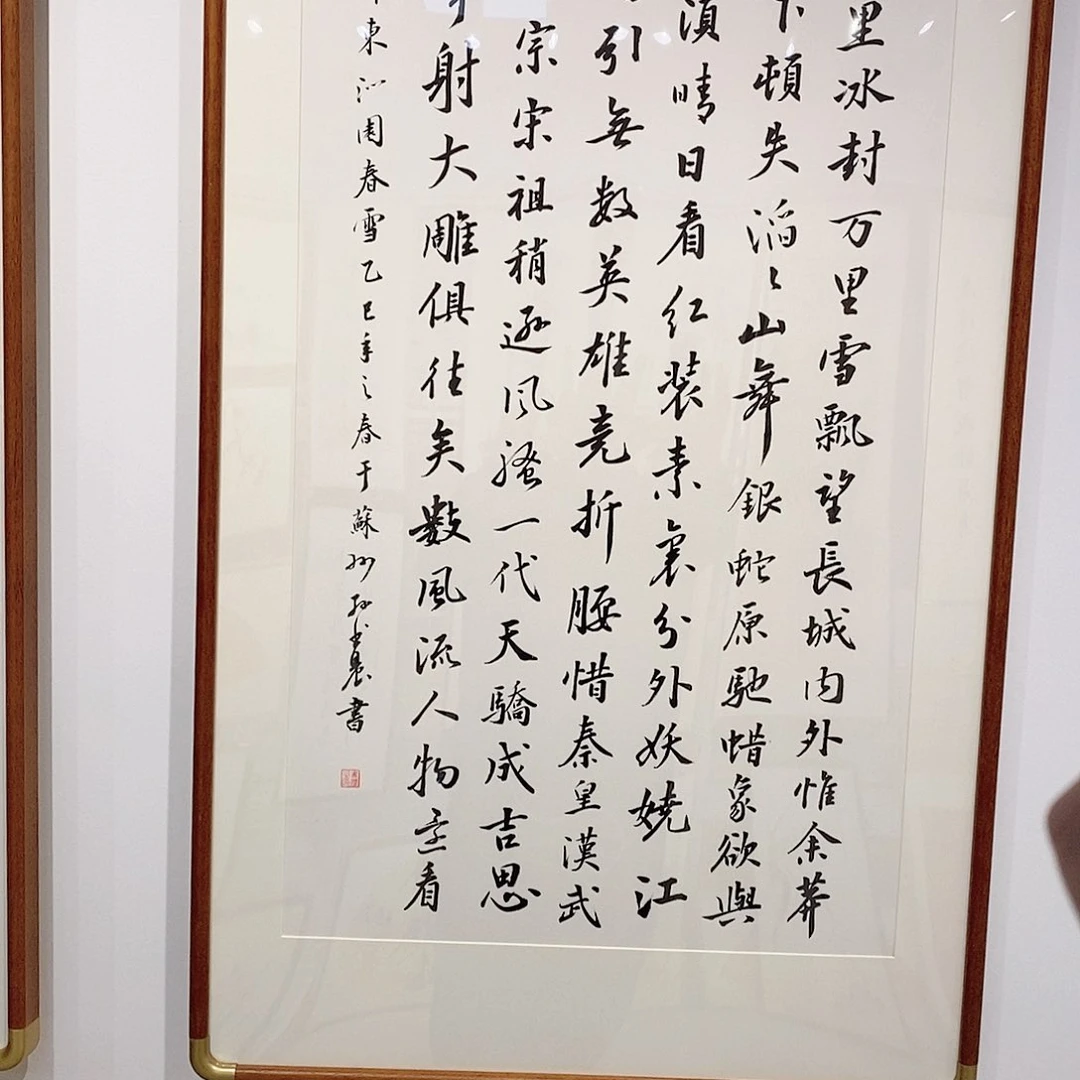 里冰封万里雪飘望長城内外惟余莽
下頓失滔〻山舞銀蛇原馳蜡象欲與
須晴日看红装素裹分外妖娆江
引無数英雄竞折腰惜秦皇漢武
宗宋祖稍逊风骚一代天驕成吉思
射大雕俱往矣數風流人物还看
東沁园春雪乙巳年之春于蘇州孙書